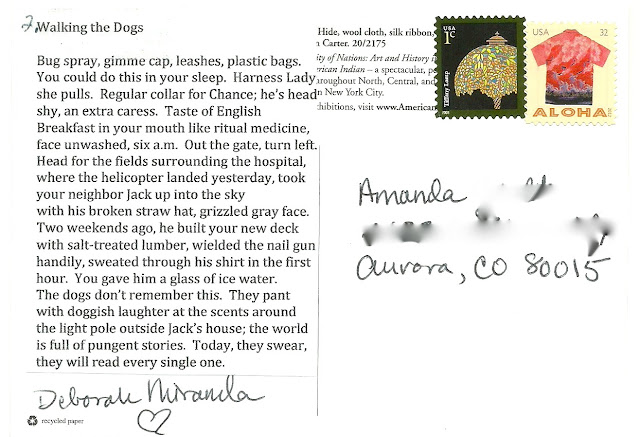 2. Walking the Dogs
Bug spray, gimme cap, leashes, plastic bags.
You could do this in your sleep.  Harness Lady
she pulls.  Regular collar for Chance; he's head
shy, an extra caress.  Taste of English
Breakfast in your mouth like ritual medicine,
face unwashed, six a.m.  Out the gate, turn left.
Head for the fields surrounding the hospital,
where the helicopter landed yesterday, took
your neighbor Jack up into the sky
with his broken straw hat, grizzled gray face.
Two weekends ago, he built your new deck
with salt-treated lumber, wielded the nail gun
handily, sweated through his shirt in the first
hour.  You gave him a glass of ice water.
The dogs don't remember this.  They pant
with doggish laughter at the scents around
the light pole outside Jack's house; the world
is full of pungent stories.  Today, they swear,
they will read every single one.
Deborah Miranda
recycled paper
Hide, wool cloth, silk ribbon,
Carter. 20/2175
ity of Nations: Art and History i
rican Indian – a spectacular, p
roughout North, Central, and
n New York City.
hibitions, visit www.American
USA
1c
Tiffany Lamp
USA 32
ALOHA
Amanda
Aurora, CO 80015